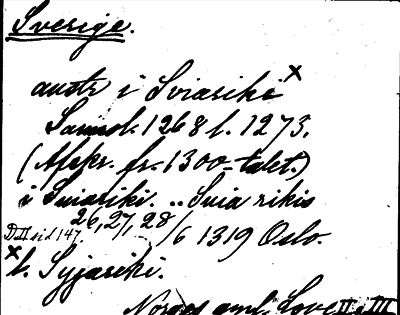 Sverige.
austr i Sviariki x
Samml. 1268 l. 1273.
(Afskr. fr. 1300-talet.)
i Suiariki. .. Suia rikis
26, 27, 28/6 1319 Oslo.
D II sid 147.
x l. Syjariki.
Norges aml. Love II III